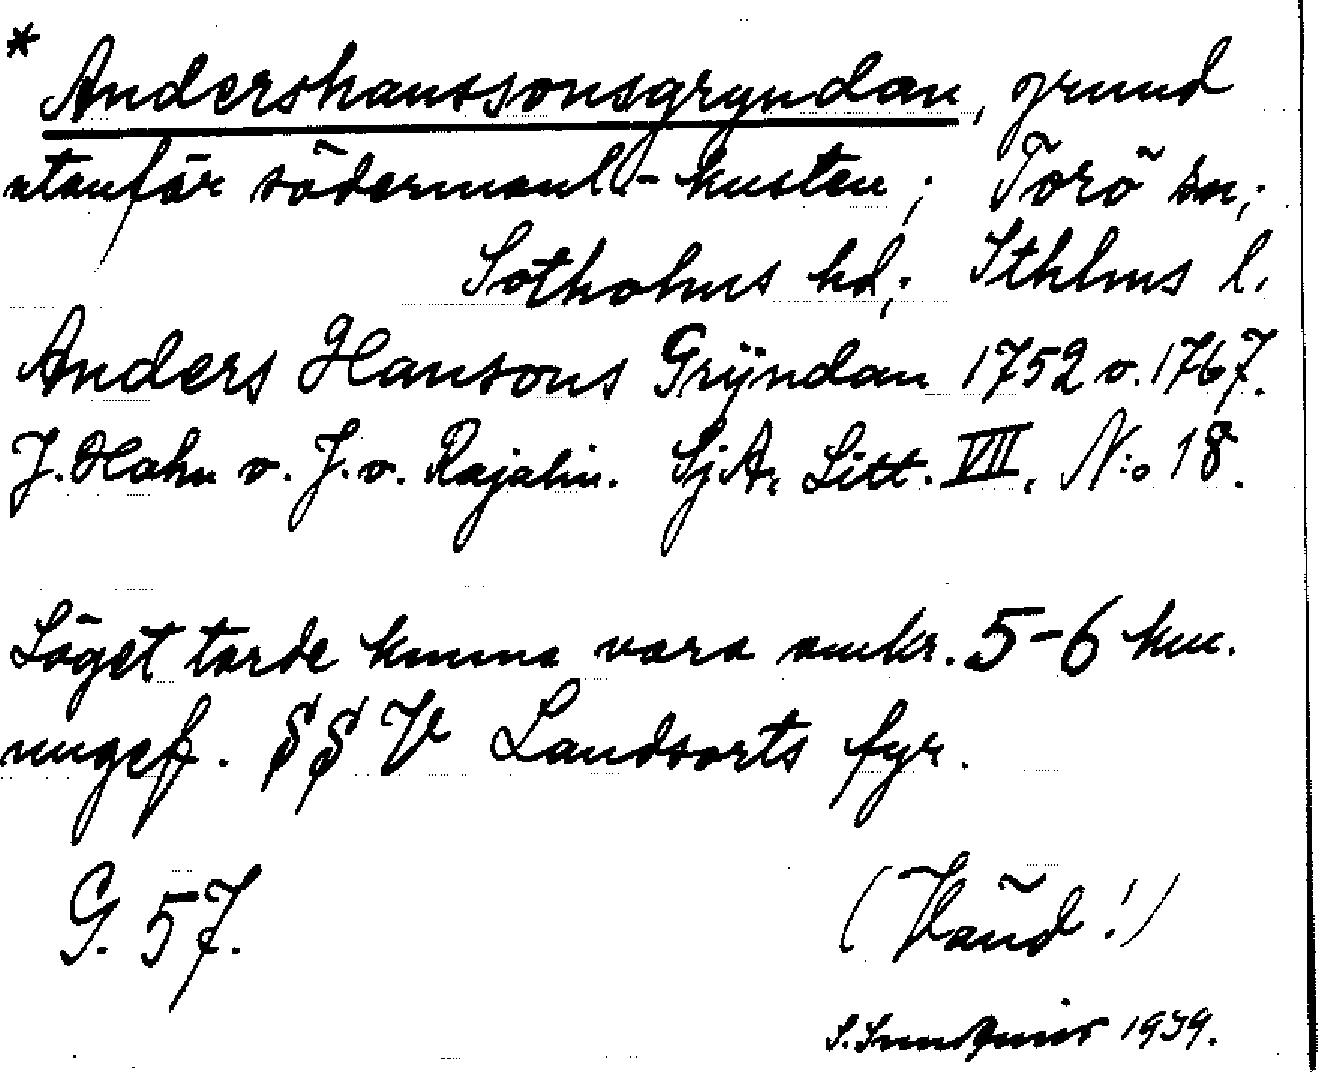 * Andershanssonsgryndan, grund
utanför södermanl.-kusten; Torö sn;
Sotholms hd; Sthlms l.
Anders Hansons Grÿndan 1752 o. 1767.
J. Hahn o. J. v. Rajalin. SjA, Litt. VII, N:o 18.
Läget torde kunna vara omkr. 5-6 km.
ungef. SSV Landsorts fyr.
G. 57.
(Vänd!)
S. Sundqvist 1939.